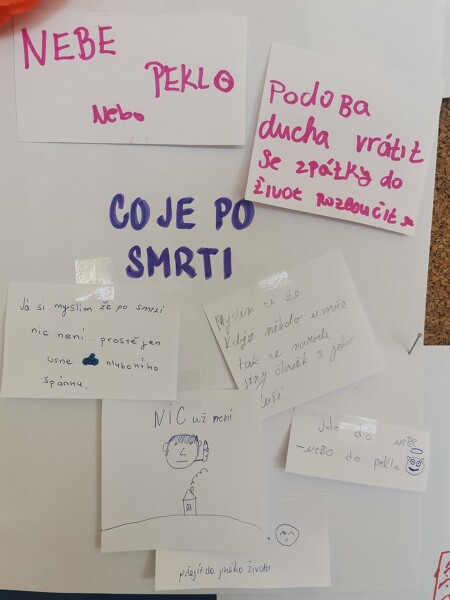 NEBE
PEKLO
Nebo
PODOBA
ducha vrátit
se zpátky do
život rozloučit se
CO JE PO
SMRTI
Já si myslim že po smrti
nic není... prostě jen
usne hlubokého
spánku.
Myslim si že
když někdo umře
tak se narodí
jiný člověk s jeho
duší
NIC už není
Jde do nebe
-nebo do pekla
přejít do jiného života